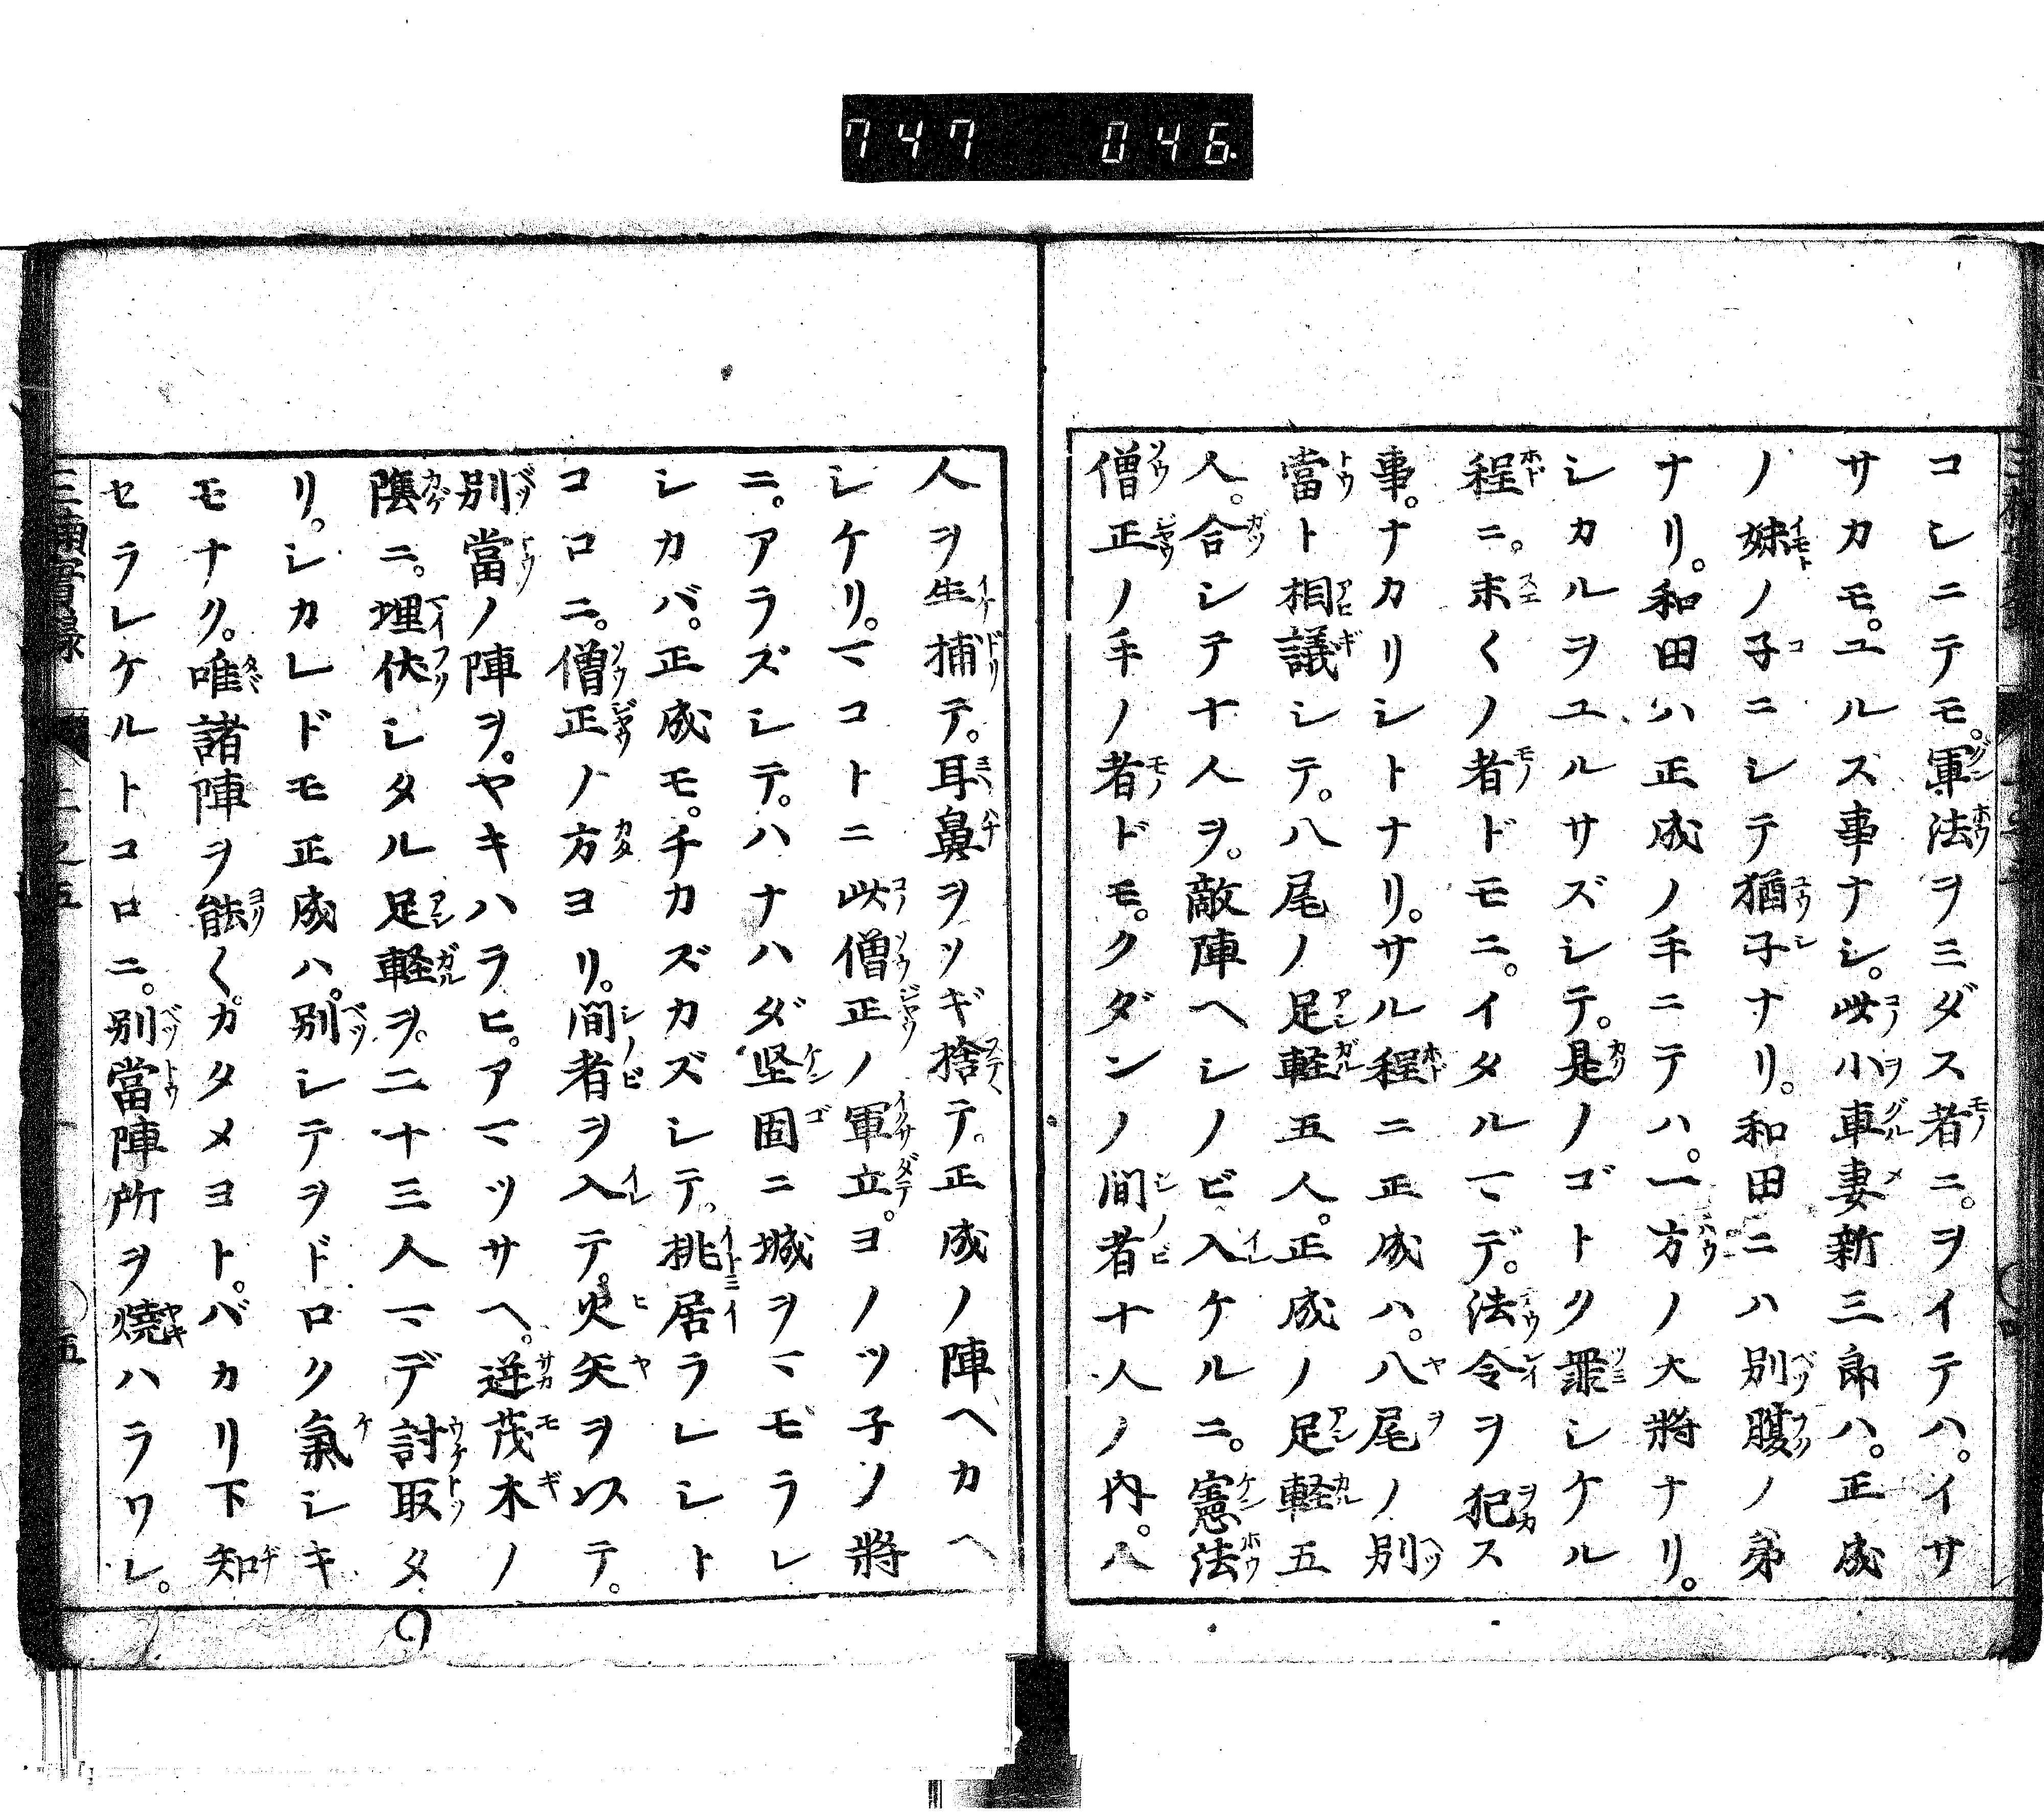 747 046.
コレニテモ。軍法ヲミダス者ニ。ヲイテハ。イサ
サカモ。ユルス事ナシ。此小車妻新三郎ハ。正成
ノ妹ノ子ニシテ猶子ナリ。和田ニハ別腹ノ弟
ナリ。和田ハ正成ノ手ニテハ。一方ノ大將ナリ。
シカルヲユルサズシテ。是ノゴトク罪シケル
程ニ。末〱ノ者ドモニ。イタルマデ。法令ヲ犯ス
事。ナカリシトナリ。サル程ニ正成ハ。八尾ノ別
當ト相議シテ。八尾ノ足軽五人。正成ノ足軽五
人。合シテ十人ヲ。敵陣ヘシノビ入ケルニ。憲法
僧正ノ手ノ者ドモ。クダンノ間者十人ノ内。八
人ヲ生捕テ。耳鼻ヲソギ捨テ。正成ノ陣ヘカヘ
シケリ。マコトニ此僧正ノ軍立。ヨノツ子ノ將
ニ。アラズシテ。ハナハダ堅固ニ城ヲマモラレ
シカバ。正成モ。チカズカズシテ。挑居ラレシト
コロニ。僧正ノ方ヨリ。間者ヲ入テ。火矢ヲハス テ。
別當ノ陣ヲ。ヤキハラヒ。アマツサヘ。逆茂木ノ
陰ニ。埋伏シタル足軽ヲ。二十三人マデ討取タ
リ。シカレドモ正成ハ。別シテヲドロク氣シキ
モナク。唯諸陣ヲ能〱。カタメヨト。バカリ下知
セラレケルトコロニ。別當陣所ヲ燒ハラワレ。